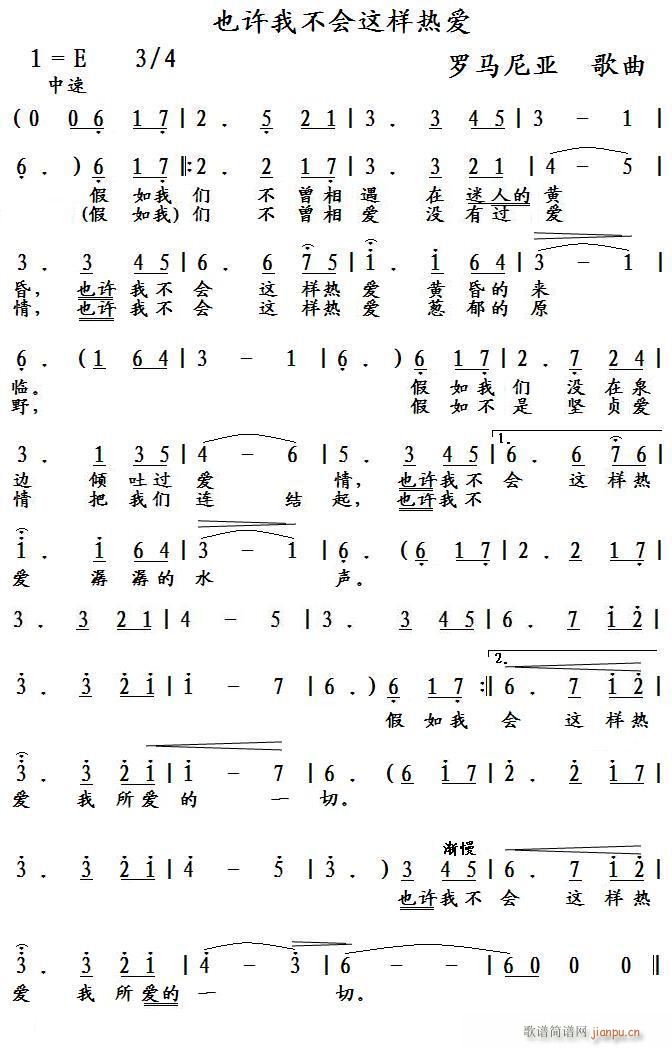 也许我不会这样热爱
1 = E 3/4 罗马尼亚 歌曲
中速
(0 0 6 1 7 | 2 . 5 2 1 | 3 . 3 4 5 | 3 – 1 |
6 . ) 6 1 7 ‖: 2 . 2 1 7 | 3 . 3 2 1 | 4 – 5 |
假 如我 们 不 曾相 遇 在 迷人的 黄
(假 如我) 们 不 曾相 爱 没 有过 爱
3 . 3 4 5 | 6 . 6 7 5 | 1 . 1 6 4 | 3 – 1 |
昏, 也许 我不 会 这 样热 爱 黄 昏的 来
情, 也许 我不 会 这 样热 爱 葱 郁的 原
6 . (1 6 4 | 3 – 1 | 6 . ) 6 1 7 | 2 . 7 2 4 |
临。 假 如我 们 没 在泉
野, 假 如不 是 坚 贞爱
3 . 1 3 5 | 4 – 6 | 5 . 3 4 5 | 1. 6 . 6 7 6 |
边 倾 吐过 爱 情, 也许 我不 会 这 样热
情 把 我们 连 结 起, 也许 我不
1 . 1 6 4 | 3 – 1 | 6 . (6 1 7 | 2 . 2 1 7 |
爱 潺 潺的 水 声。
3 . 3 2 1 | 4 – 5 | 3 . 3 4 5 | 6 . 7 1 2 |
3 . 3 2 1 | 1 – 7 | 6 . ) 6 1 7 :‖ 2. 6 . 7 1 2 |
假 如我 会 这 样热
3 . 3 2 1 | 1 – 7 | 6 . (6 1 7 | 2 . 2 1 7 |
爱 我 所爱 的 一 切。
渐慢
3 . 3 2 1 | 4 – 5 | 3 . ) 3 4 5 | 6 . 7 1 2 |
也许 我不 会 这 样热
3 . 3 2 1 | 4 – 3 | 6 – – | 6 0 0 0 ‖
爱 我 所爱的 一 切。
歌谱简谱网 jianpu.cn